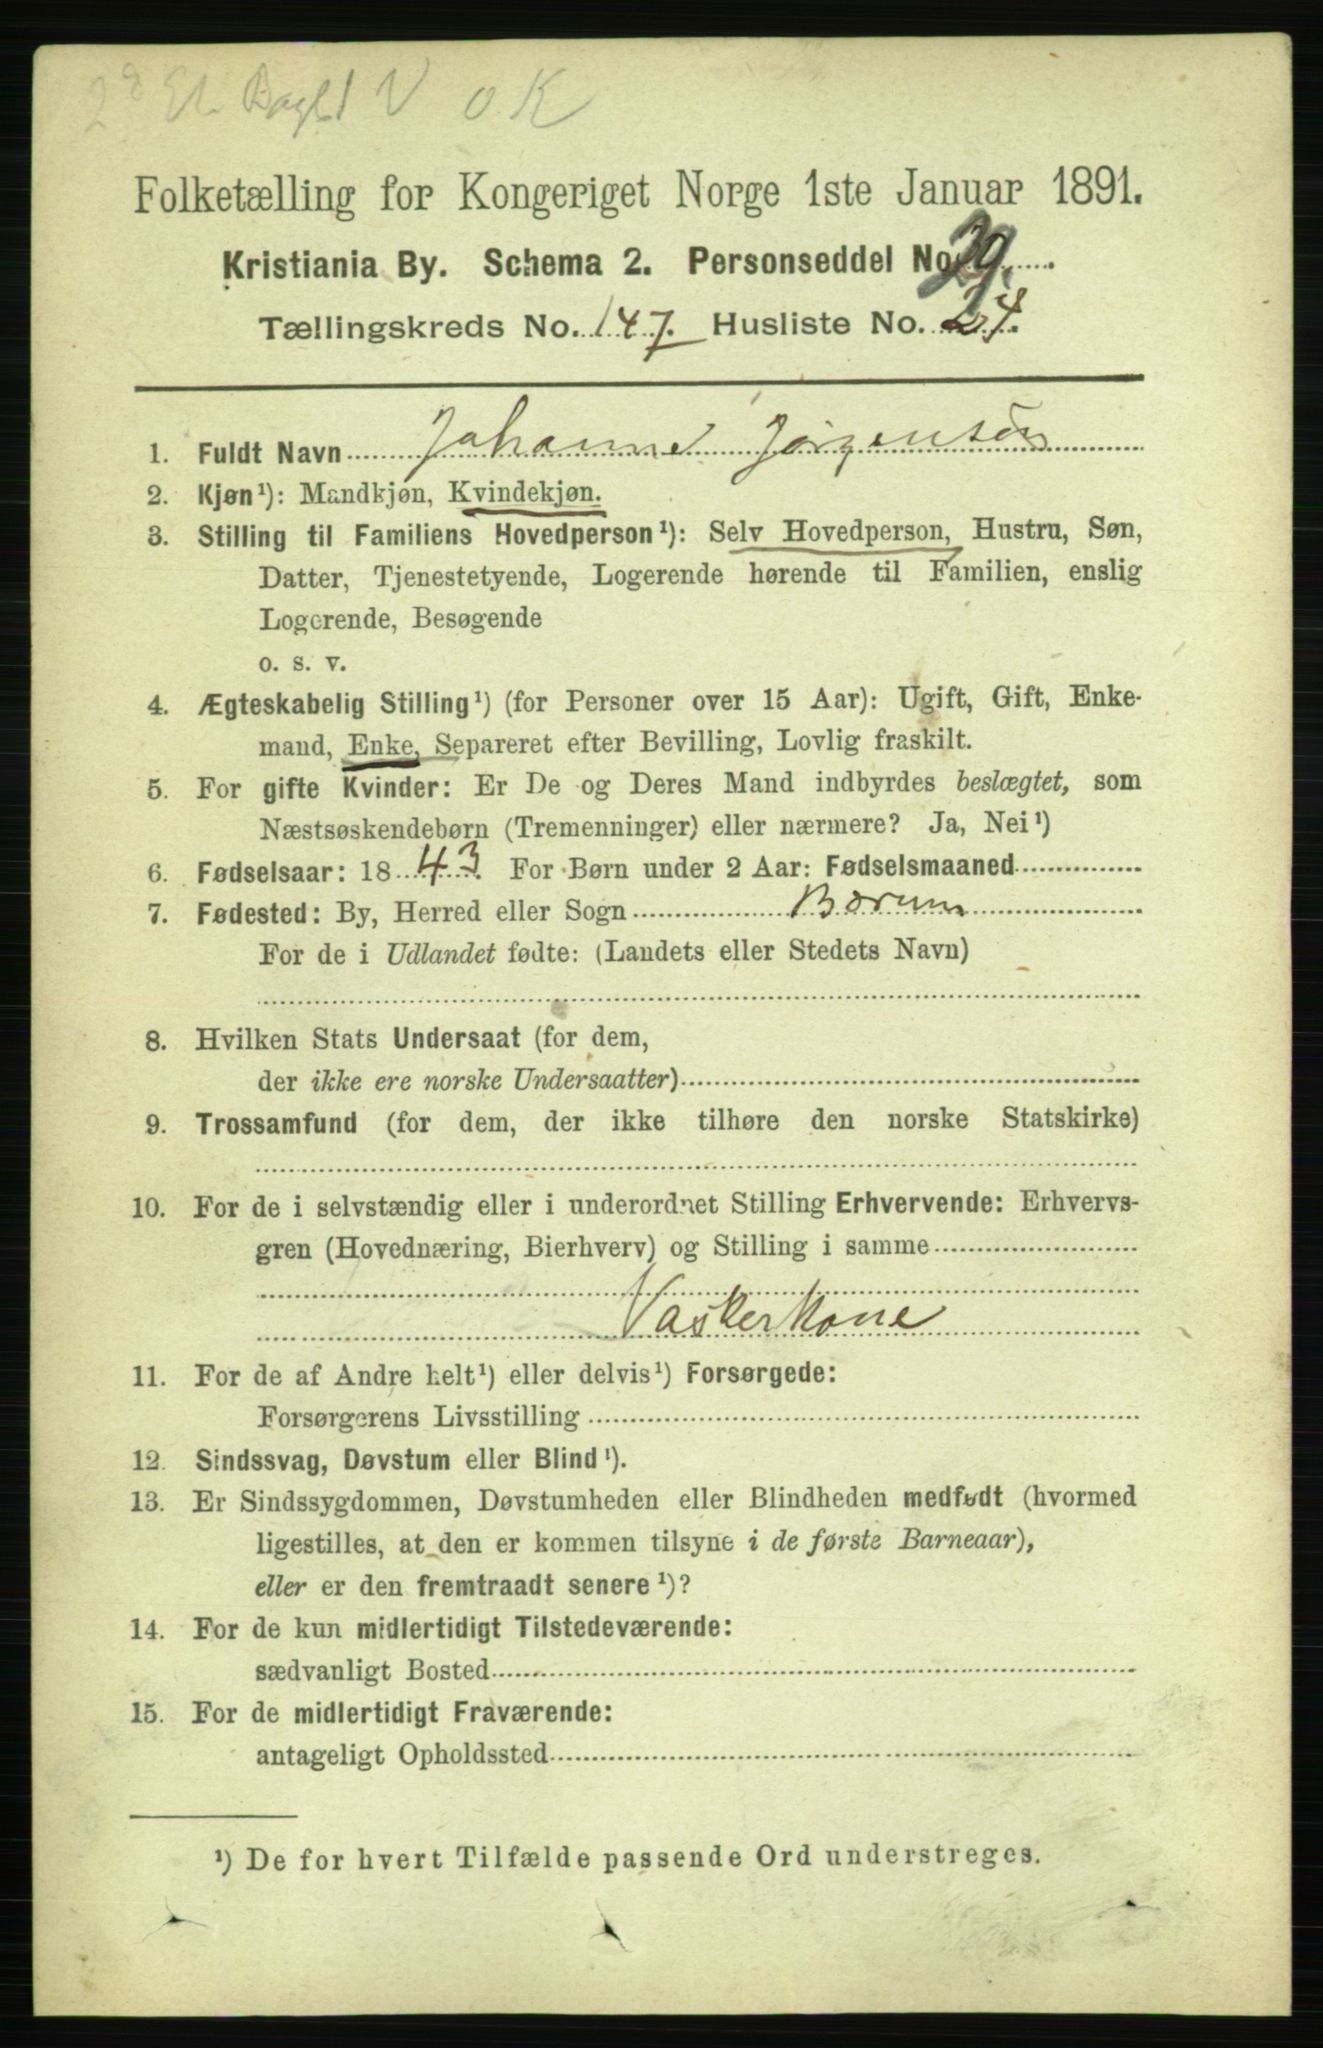 2d Et. Bagb V o K
Folketælling for Kongeriget Norge 1ste Januar 1891.
Kristiania By. Schema 2. Personseddel No. 39.
Tællingskreds No. 147. Husliste No. 24.
1. Fuldt Navn Johanne Jörgensen
2. Kjøn¹): Mandkjøn, Kvindekjøn.
3. Stilling til Familiens Hovedperson¹): Selv Hovedperson, Hustru, Søn,
Datter, Tjenestetyende, Logerende hørende til Familien, enslig
Logerende, Besøgende
o. s. v.
4. Ægteskabelig Stilling¹) (for Personer over 15 Aar): Ugift, Gift, Enke-
mand, Enke, Separeret efter Bevilling, Lovlig fraskilt.
5. For gifte Kvinder: Er De og Deres Mand indbyrdes beslægtet, som
Næstsøskendebørn (Tremenninger) eller nærmere? Ja, Nei¹)
6. Fødselsaar: 1843. For Børn under 2 Aar: Fødselsmaaned
7. Fødested: By, Herred eller Sogn Bærum
For de i Udlandet fødte: (Landets eller Stedets Navn)
8. Hvilken Stats Undersaat (for dem,
der ikke ere norske Undersaatter)
9. Trossamfund (for dem, der ikke tilhøre den norske Statskirke)
10. For de i selvstændig eller i underordnet Stilling Erhvervende: Erhvervs-
gren (Hovednæring, Bierhverv) og Stilling i samme
Vaskerkone
11. For de af Andre helt¹) eller delvis¹) Forsørgede:
Forsørgerens Livsstilling
12. Sindssvag, Døvstum eller Blind¹).
13. Er Sindssygdommen, Døvstumheden eller Blindheden medfødt (hvormed
ligestilles, at den er kommen tilsyne i de første Barneaar),
eller er den fremtraadt senere¹)?
14. For de kun midlertidigt Tilstedeværende:
sædvanligt Bosted
15. For de midlertidigt Fraværende:
antageligt Opholdssted
¹) De for hvert Tilfælde passende Ord understreges.